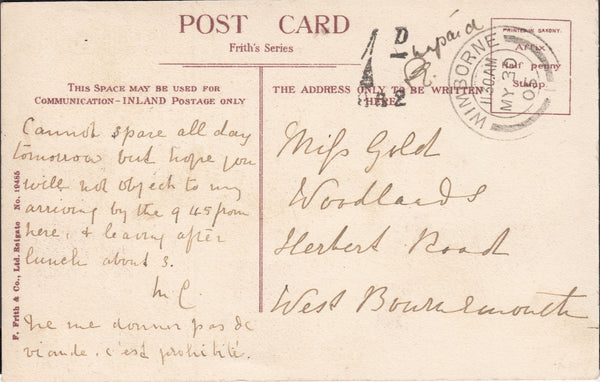 POST CARD
Frith's Series
THIS SPACE MAY BE USED FOR
COMMUNICATION - INLAND POSTAGE ONLY
THE ADDRESS ONLY TO BE WRITTEN
HERE
PRINTED IN SAXONY.
Affix
Half penny
Stamp
1D
R2
unpaid
WIMBORNE
11.30AM
MY 30
05
F. Frith & Co., Ltd. Reigate No. 19485
Cannot spare all day
tomorrow but hope you
will not object to my
arriving by the 9 45 from
here, & leaving after
lunch about 3.
M C.
Ne me donner pas de
viande. c'est prohibité.
Miss Gold
Woodlands
Herbert Road
West Bournemouth